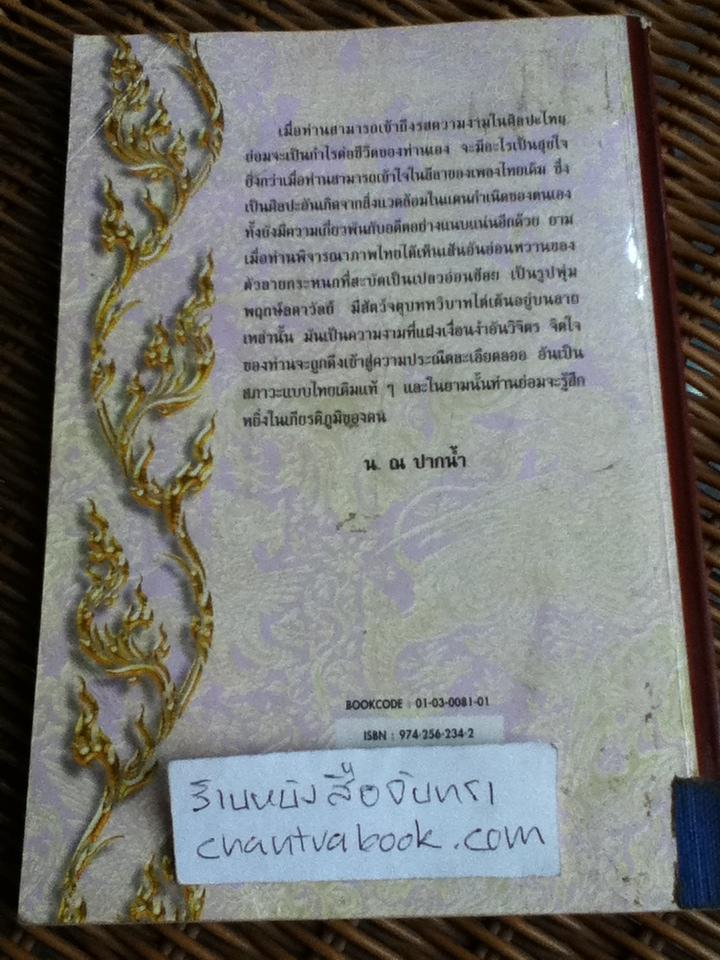 เมื่อท่านสามารถเข้าถึงรสความงามในศิลปะไทย
ย่อมจะเป็นกำไรต่อชีวิตของท่านเอง จะมีอะไรเป็นสุขใจ
ยิ่งกว่าเมื่อท่านสามารถเข้าใจในลีลาของเพลงไทยเดิม ซึ่ง
เป็นศิลปะอันเกิดจากสิ่งแวดล้อมในแดนกำเนิดของตนเอง
ทั้งยังมีความเกี่ยวพันกับอดีตอย่างแนบแน่นอีกด้วย ยาม
เมื่อท่านพิจารณาภาพไทยได้เห็นเส้นอันอ่อนหวานของ
ตัวลายกระหนกที่สะบัดเป็นเปลวอ่อนช้อย เป็นรูปพุ่ม
พฤกษ์ลดาวัลย์ มีสัตว์จตุบททวิบาทไต่เต้นอยู่บนลาย
เหล่านั้น มันเป็นความงามที่แฝงเงื่อนงำอันวิจิตร จิตใจ
ของท่านจะถูกดึงเข้าสู่ความประณีตละเอียดลออ อันเป็น
สภาวะแบบไทยเดิมแท้ ๆ และในยามนั้นท่านย่อมจะรู้สึก
หยิ่งในเกียรติภูมิของตน
น. ณ ปากน้ำ
BOOKCODE : 01-03-0081-01
ISBN : 974-256-234-2
ร้านหนังสือจันทรา
chantrabook.com